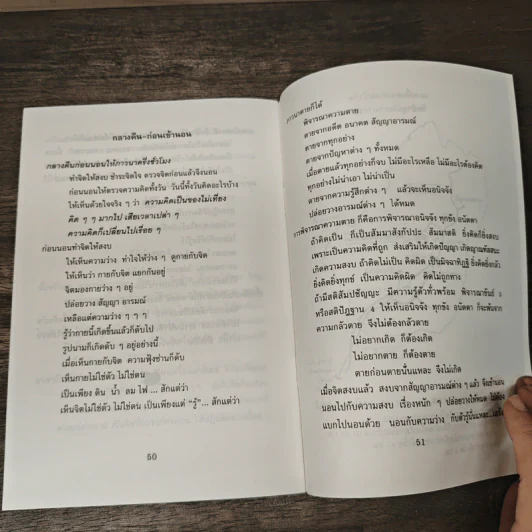 กลางคืน-ก่อนเข้านอน
กลางคืนก่อนนอนให้ภาวนาครึ่งชั่วโมง
ทำจิตให้สงบ ชำระจิตใจ ตรวจจิตก่อนแล้วจึงนอน
ก่อนนอนให้ตรวจความคิดทั้งวัน วันนี้ทั้งวันคิดอะไรบ้าง
ให้เห็นด้วยใจจริง ๆ ว่า ความคิดเป็นของไม่เที่ยง
คิด ๆ ๆ มากไป เสียเวลาเปล่า ๆ
ความคิดก็เปลี่ยนไปเรื่อย ๆ
ก่อนนอนทำจิตให้สงบ
ให้เห็นความว่าง ทำใจให้ว่าง ๆ ดูกายกับจิต
ให้เห็นว่า กายกับจิต แยกกันอยู่
จิตมองกายว่าง ๆ อยู่
ปล่อยวาง สัญญา อารมณ์
เหลือแต่ความว่าง ๆ ๆ ๆ
รู้ว่ากายนี้เกิดขึ้นแล้วก็ดับไป
รูปนามก็เกิดดับ ๆ อยู่อย่างนี้
เมื่อเห็นกายกับจิต ความฟุ้งซ่านก็ดับ
เห็นกายไม่ใช่ตัว ไม่ใช่ตน
เป็นเพียง ดิน น้ำ ลม ไฟ ... สักแต่ว่า
เห็นจิตไม่ใช่ตัว ไม่ใช่ตน เป็นเพียงแต่ "รู้"... สักแต่ว่า
50
ภาวนาตายก็ได้
พิจารณาความตาย
ตายจากอดีต อนาคต สัญญาอารมณ์
ตายจากทุกอย่าง
ตายจากปัญหาต่าง ๆ ทั้งหมด
เมื่อตายแล้วทุกอย่างก็จบ ไม่มีอะไรเหลือ ไม่มีอะไรต้องคิด
ทุกอย่างไม่น่าเอา ไม่น่าเป็น
ตายจากความรู้สึกต่าง ๆ แล้วจะเห็นอนิจจัง
ปล่อยวางอารมณ์ต่าง ๆ ได้หมด
การพิจารณาความตาย ก็คือการพิจารณาอนิจจัง ทุกขัง อนัตตา
ถ้าคิดเป็น ก็เป็นสัมมาสังกัปปะ สัมมาสติ ยิ่งคิดก็ยิ่งสงบ
เพราะเป็นความคิดที่ถูก ส่งเสริมให้เกิดปัญญา เกิดญาณทัสสนะ
เกิดความสงบ ถ้าคิดไม่เป็น คิดผิด เป็นมิจฉาทิฏฐิ ยิ่งคิดยิ่งกลัว
ยิ่งคิดยิ่งทุกข์ เป็นความคิดผิด คิดไม่ถูกทาง
ถ้ามีสติสัมปชัญญะ มีความรู้ตัวทั่วพร้อม พิจารณาขันธ์ 5
หรือสติปัฏฐาน 4 ให้เห็นอนิจจัง ทุกขัง อนัตตา ก็จะพ้นจาก
ความกลัวตาย จึงไม่ต้องกลัวตาย
ไม่อยากเกิด ก็ต้องเกิด
ไม่อยากตาย ก็ต้องตาย
ตายก่อนตายนั่นแหละ จึงไม่เกิด
เมื่อจิตสงบแล้ว สงบจากสัญญาอารมณ์ต่าง ๆ แล้ว จึงเข้านอน
นอนไปกับความสงบ เรื่องหนัก ๆ ปล่อยวางให้หมด ไม่ต้อง
แบกไปนอนด้วย นอนกับความว่าง กับตัวรู้นั่นแหละ...
51